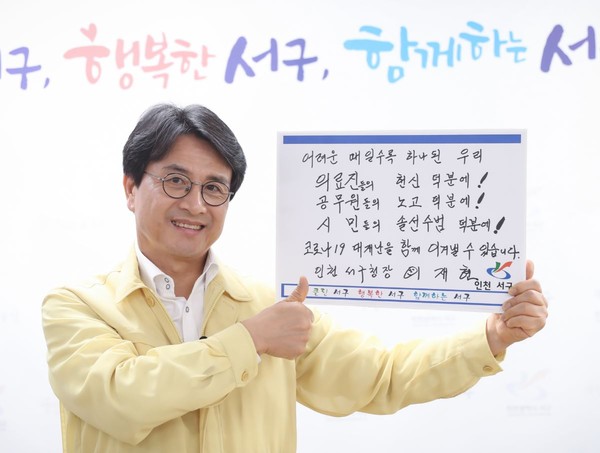 서구, 행복한 서구, 함께하는 서
어려운 때일수록 하나된 우리
의료진들의 헌신 덕분에!
공무원들의 노고 덕분에!
시민들의 솔선수범 덕분에!
코로나19 대재난을 함께 이겨낼 수 있습니다.
인천 서구청장 이재현
인천 서구
클린 서구 행복한 서구 함께하는 서구